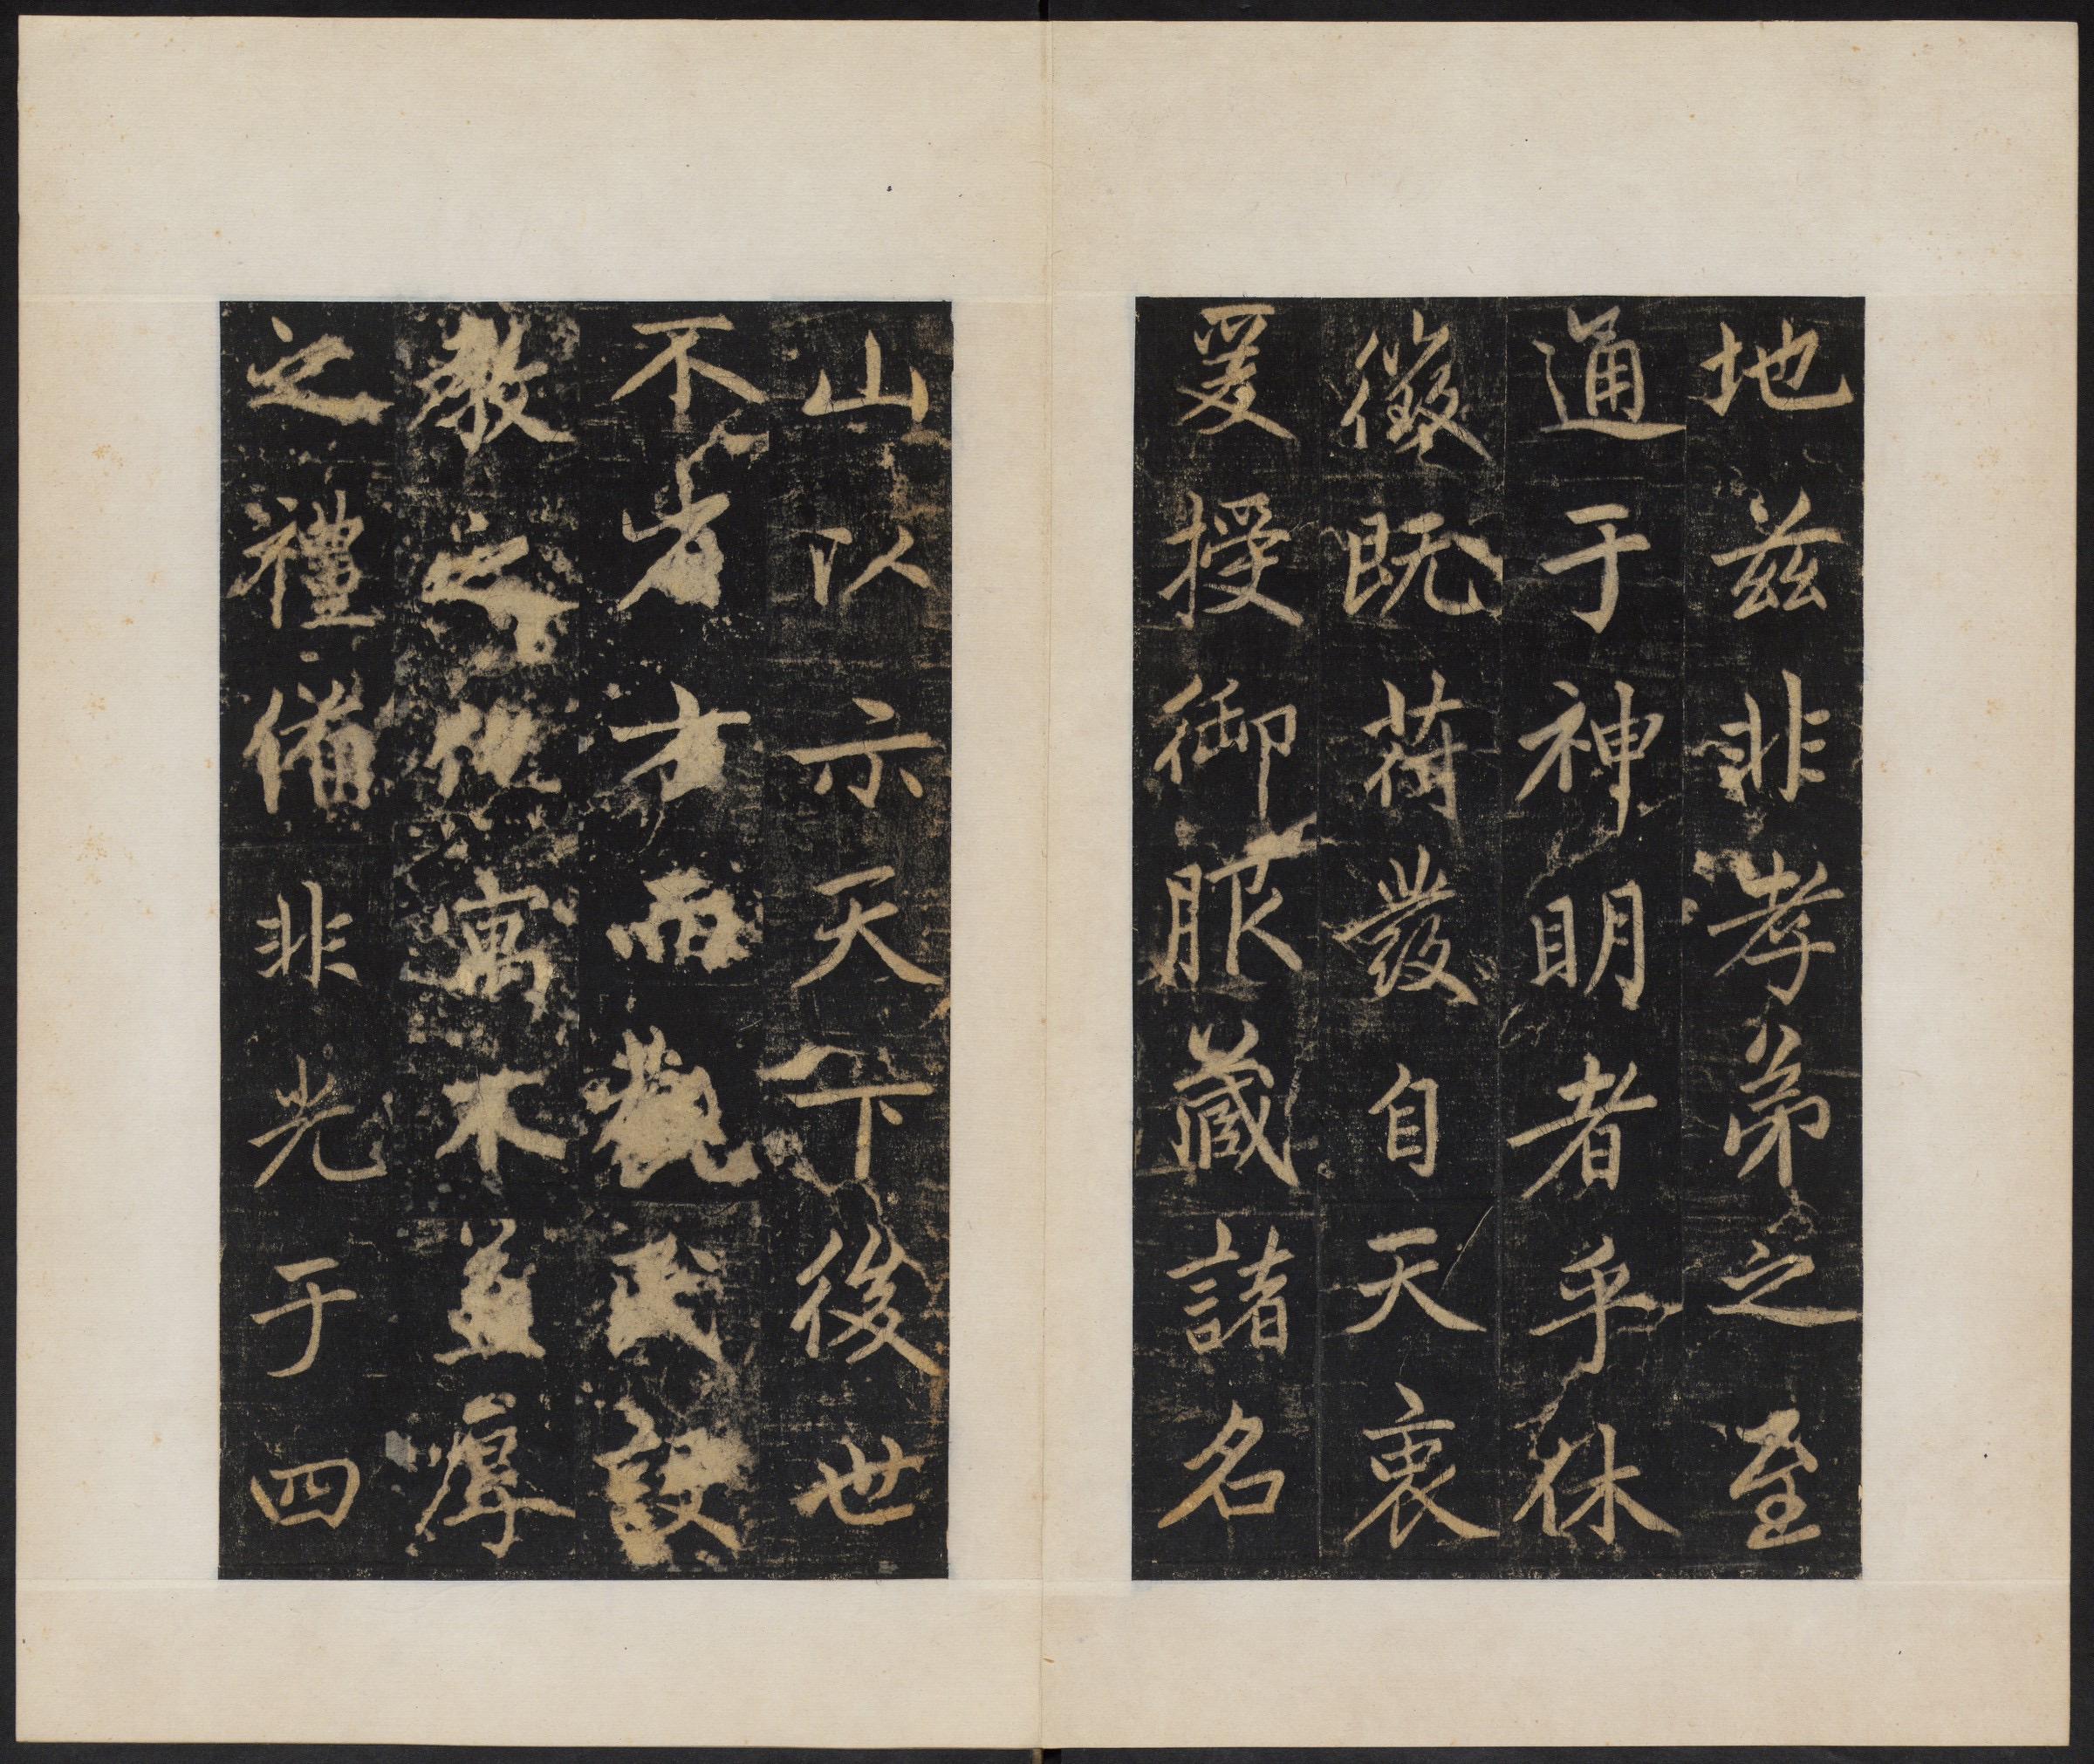 地茲非孝弟之至
通于神明者乎休
徵既荷發自天衷
爰授御服藏諸名
山以示天下後世
不省方而觀民設
教之寓不
之禮備非光于四